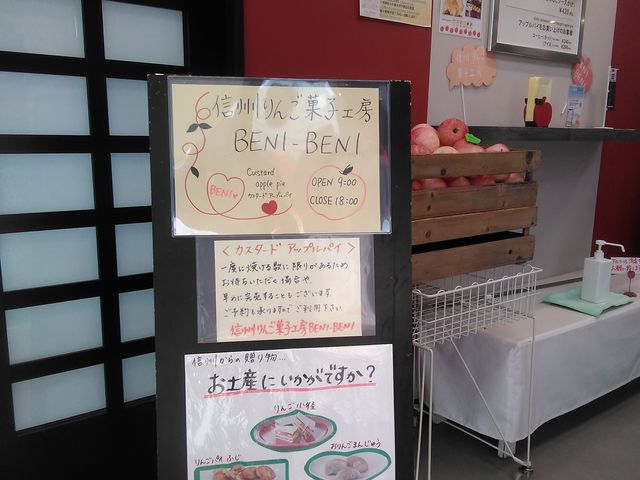 6 信州りんご菓子工房
BENI-BENI
Custard
apple pie
カスタードアップルパイ
BENI
OPEN 9:00
CLOSE 18:00
<カスタードアップルパイ>
一度に焼ける数に限りがあるため
お待ちいただく場合や、
早めに完売することもございます。
ご予約も承りますので ご利用下さい
信州りんご菓子工房BENI-BENI
信州からの贈り物…
お土産にいかがですか?
りんご小径
おりんごまんじゅう
りんごパイ ふじ
アップルパイをお買い上げのお客様